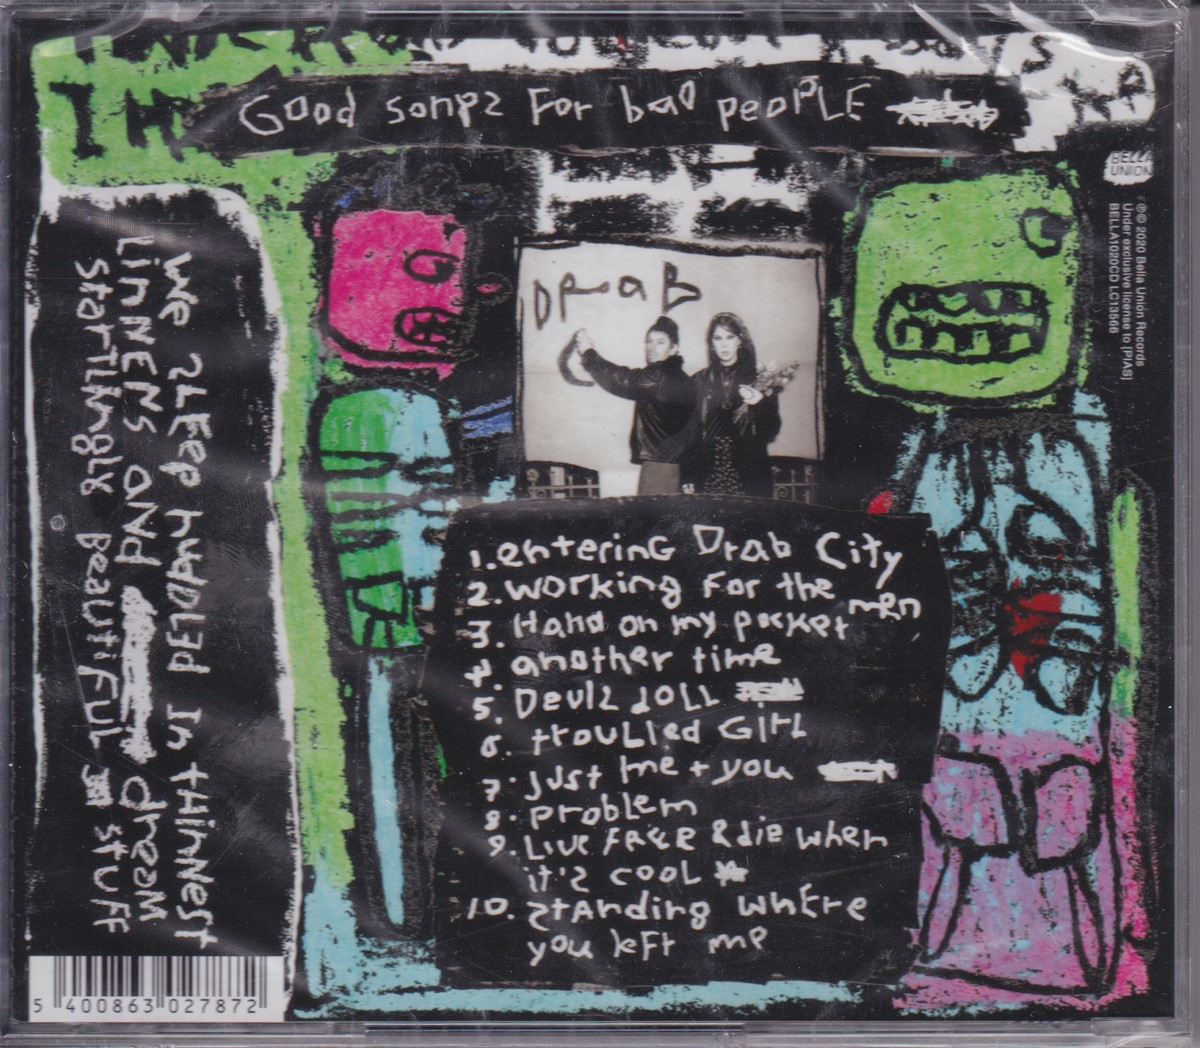 Good songs For bad people
BELLA
UNION
℗© 2020 Bella Union Records
Under exclusive license to [PIAS]
BELLA1020CD LC13566
Drab
1. entering Drab City
2. working for the men
3. Hand on my pocket
4 another time
5. Devils doll
6. troubled Girl
7. just me + you
8. problem
9. Live free & die when
it's cool
10. standing where
you left me
we sleep handled in thinnest
Linens and dream
startlingly Beautiful stuff
5 400863 027872